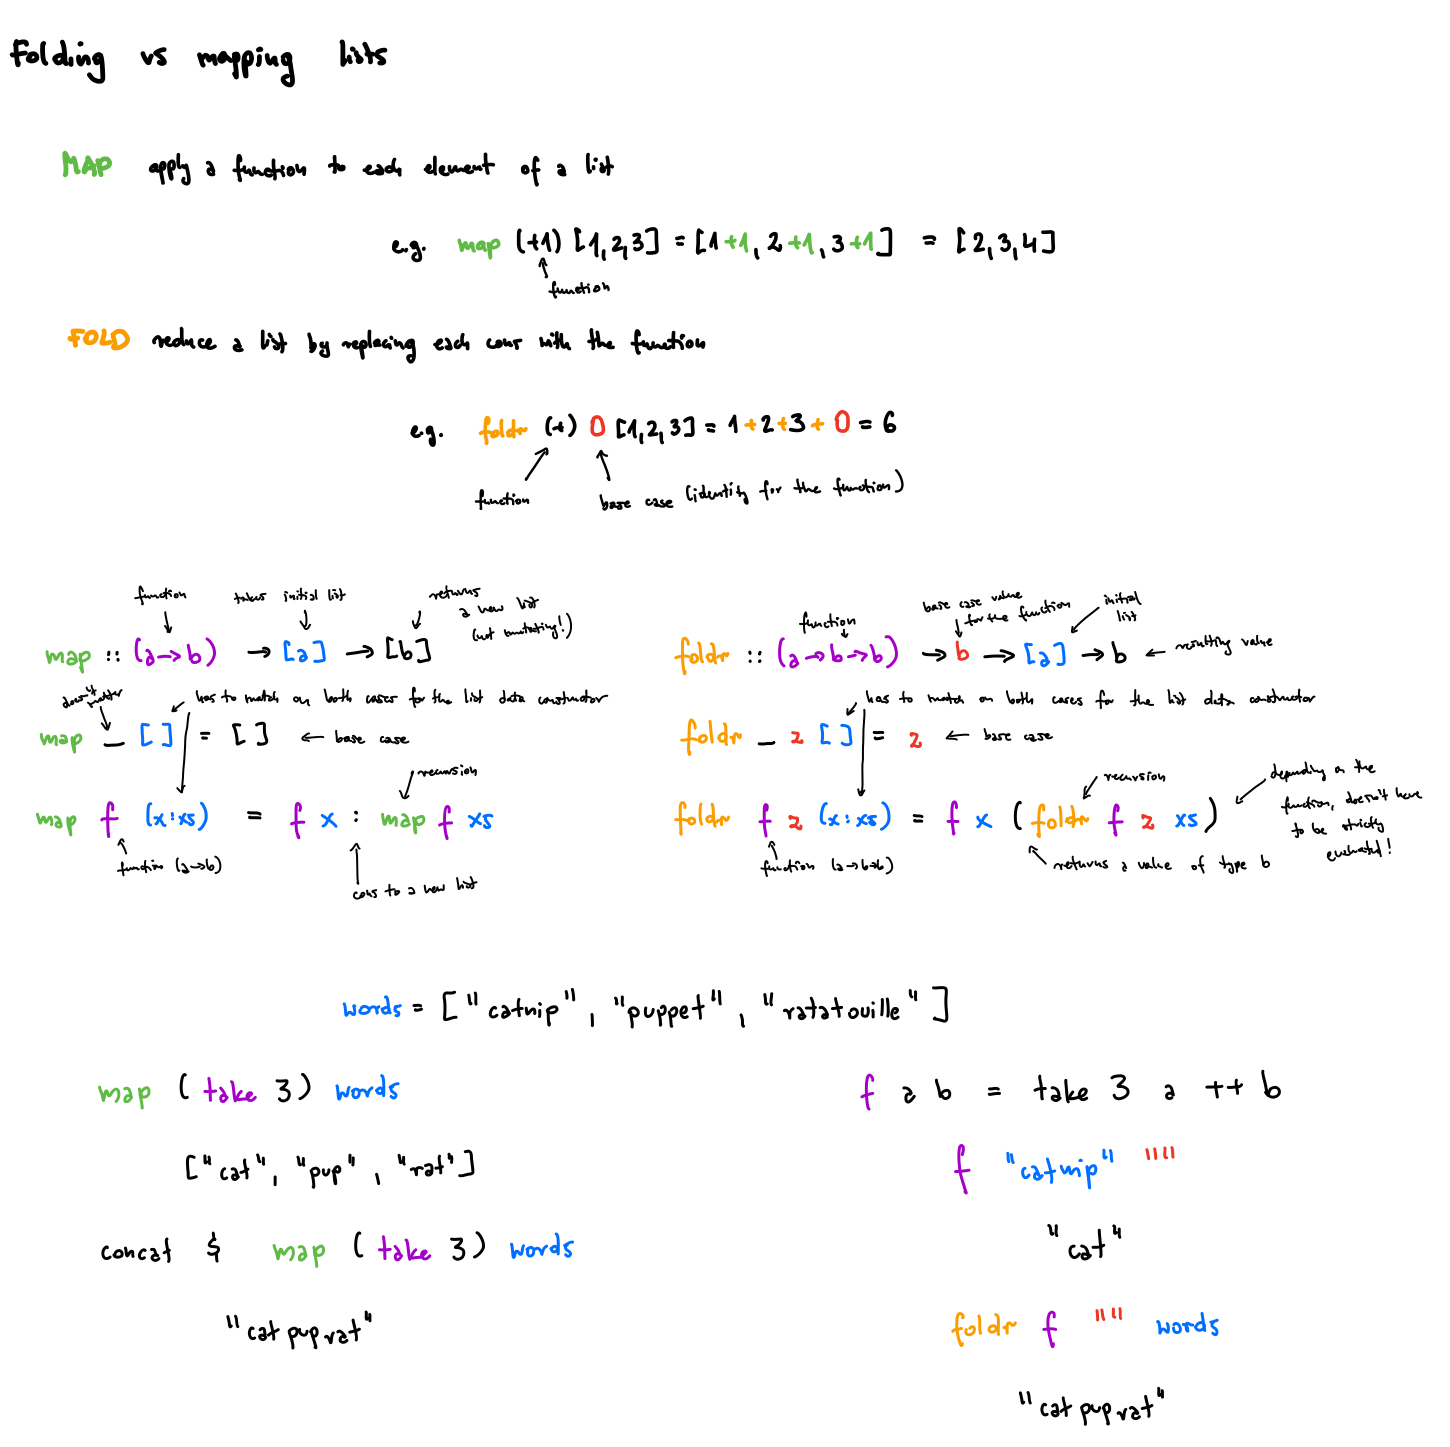 Folding vs mapping lists
MAP apply a function to each element of a list
e.g. map (+1) [1,2,3] = [1+1, 2+1, 3+1] = [2,3,4]
function
FOLD reduce a list by replacing each cons with the function
e.g. foldr (+) 0 [1,2,3] = 1+2+3+0 = 6
function
base case (identity for the function)
function
takes initial list
returns
a new list
(not mutating!)
map :: (a→b) → [a] → [b]
doesn't
matter
has to match on both cases for the list data constructor
map _ [] = [] ← base case
recursion
map f (x:xs) = f x : map f xs
function (a→b)
cons to a new list
function
base case value
for the function
initial
list
foldr :: (a→b→b) → b → [a] → b ← resulting value
has to match on both cases for the list data constructor
foldr _ z [] = z ← base case
recursion
depending on the
function, doesn't have
to be strictly
evaluated!
foldr f z (x:xs) = f x (foldr f z xs)
function (a→b→b)
returns a value of type b
words = ["catnip", "puppet", "ratatouille"]
map (take 3) words
["cat", "pup", "rat"]
concat $ map (take 3) words
"catpuprat"
f a b = take 3 a ++ b
f "catnip" ""
"cat"
foldr f "" words
"catpuprat"